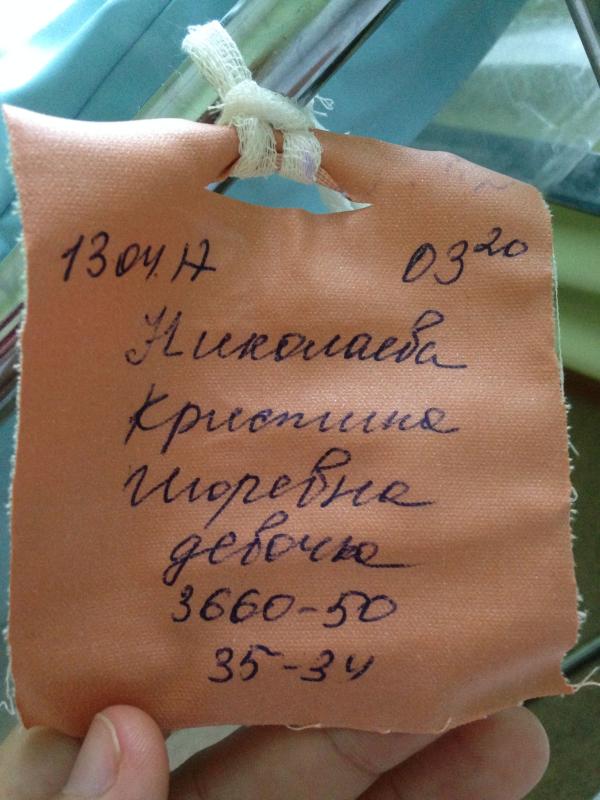 13 04. 17 03²⁰
Николаева
Кристина
Игоревна
девочка
3660-50
35-34